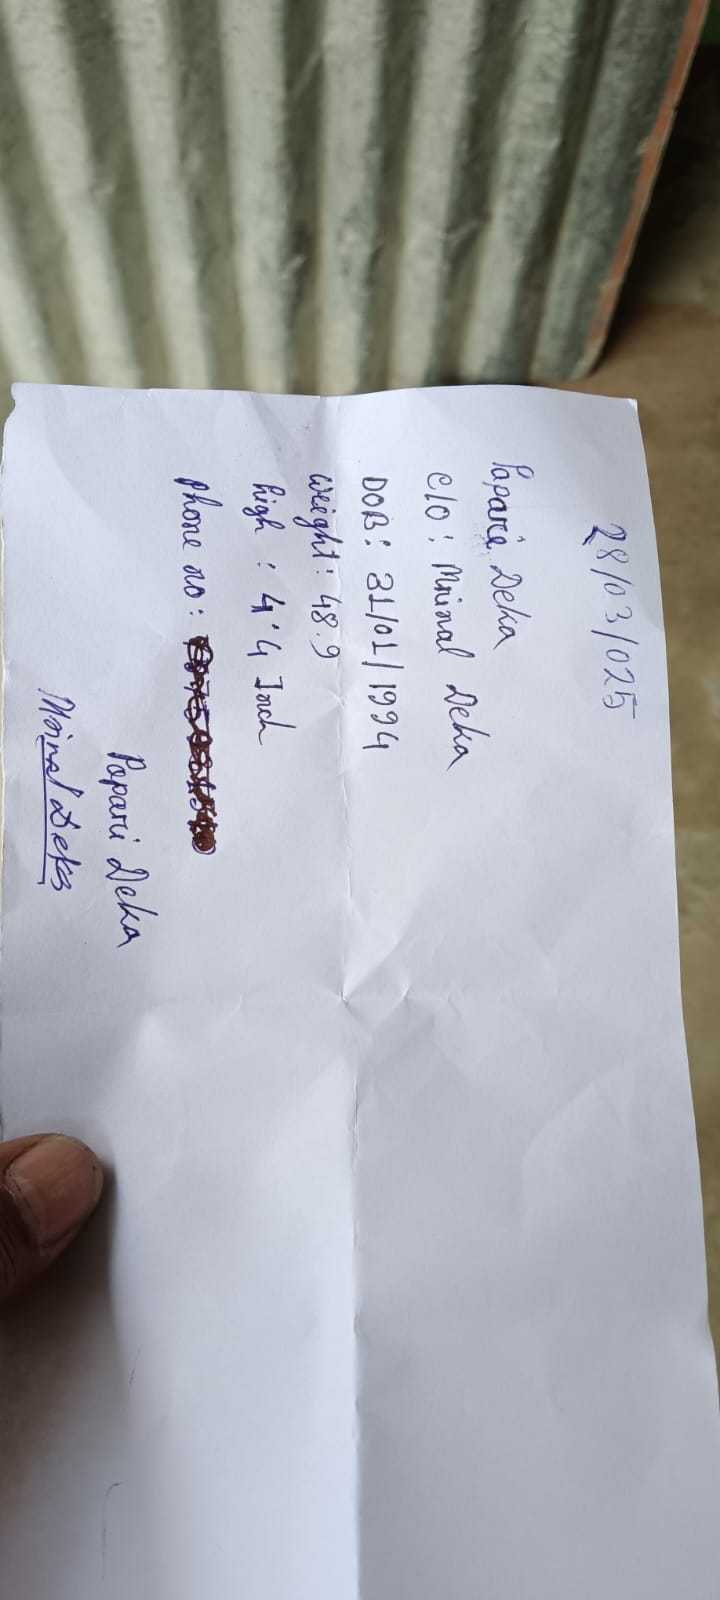 28/03/025
Papari Deka
C/O: Mrinal Deka
DOB: 31/01/1994
Weight: 48.9
high : 4'4 Inch
Phone no:
Papari Deka
Mrinal Deka